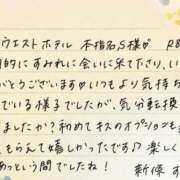 ウエストホテル 本指名S様が R8
的にすみれに会いに来て下さり、い
がとうございます♡いつもより気持ち
ている様子でしたが、気分転換
ましたか？初めてキスのオプションも
もらえて嬉しかったです♪楽しく
あっという間でしたね！
新保 す